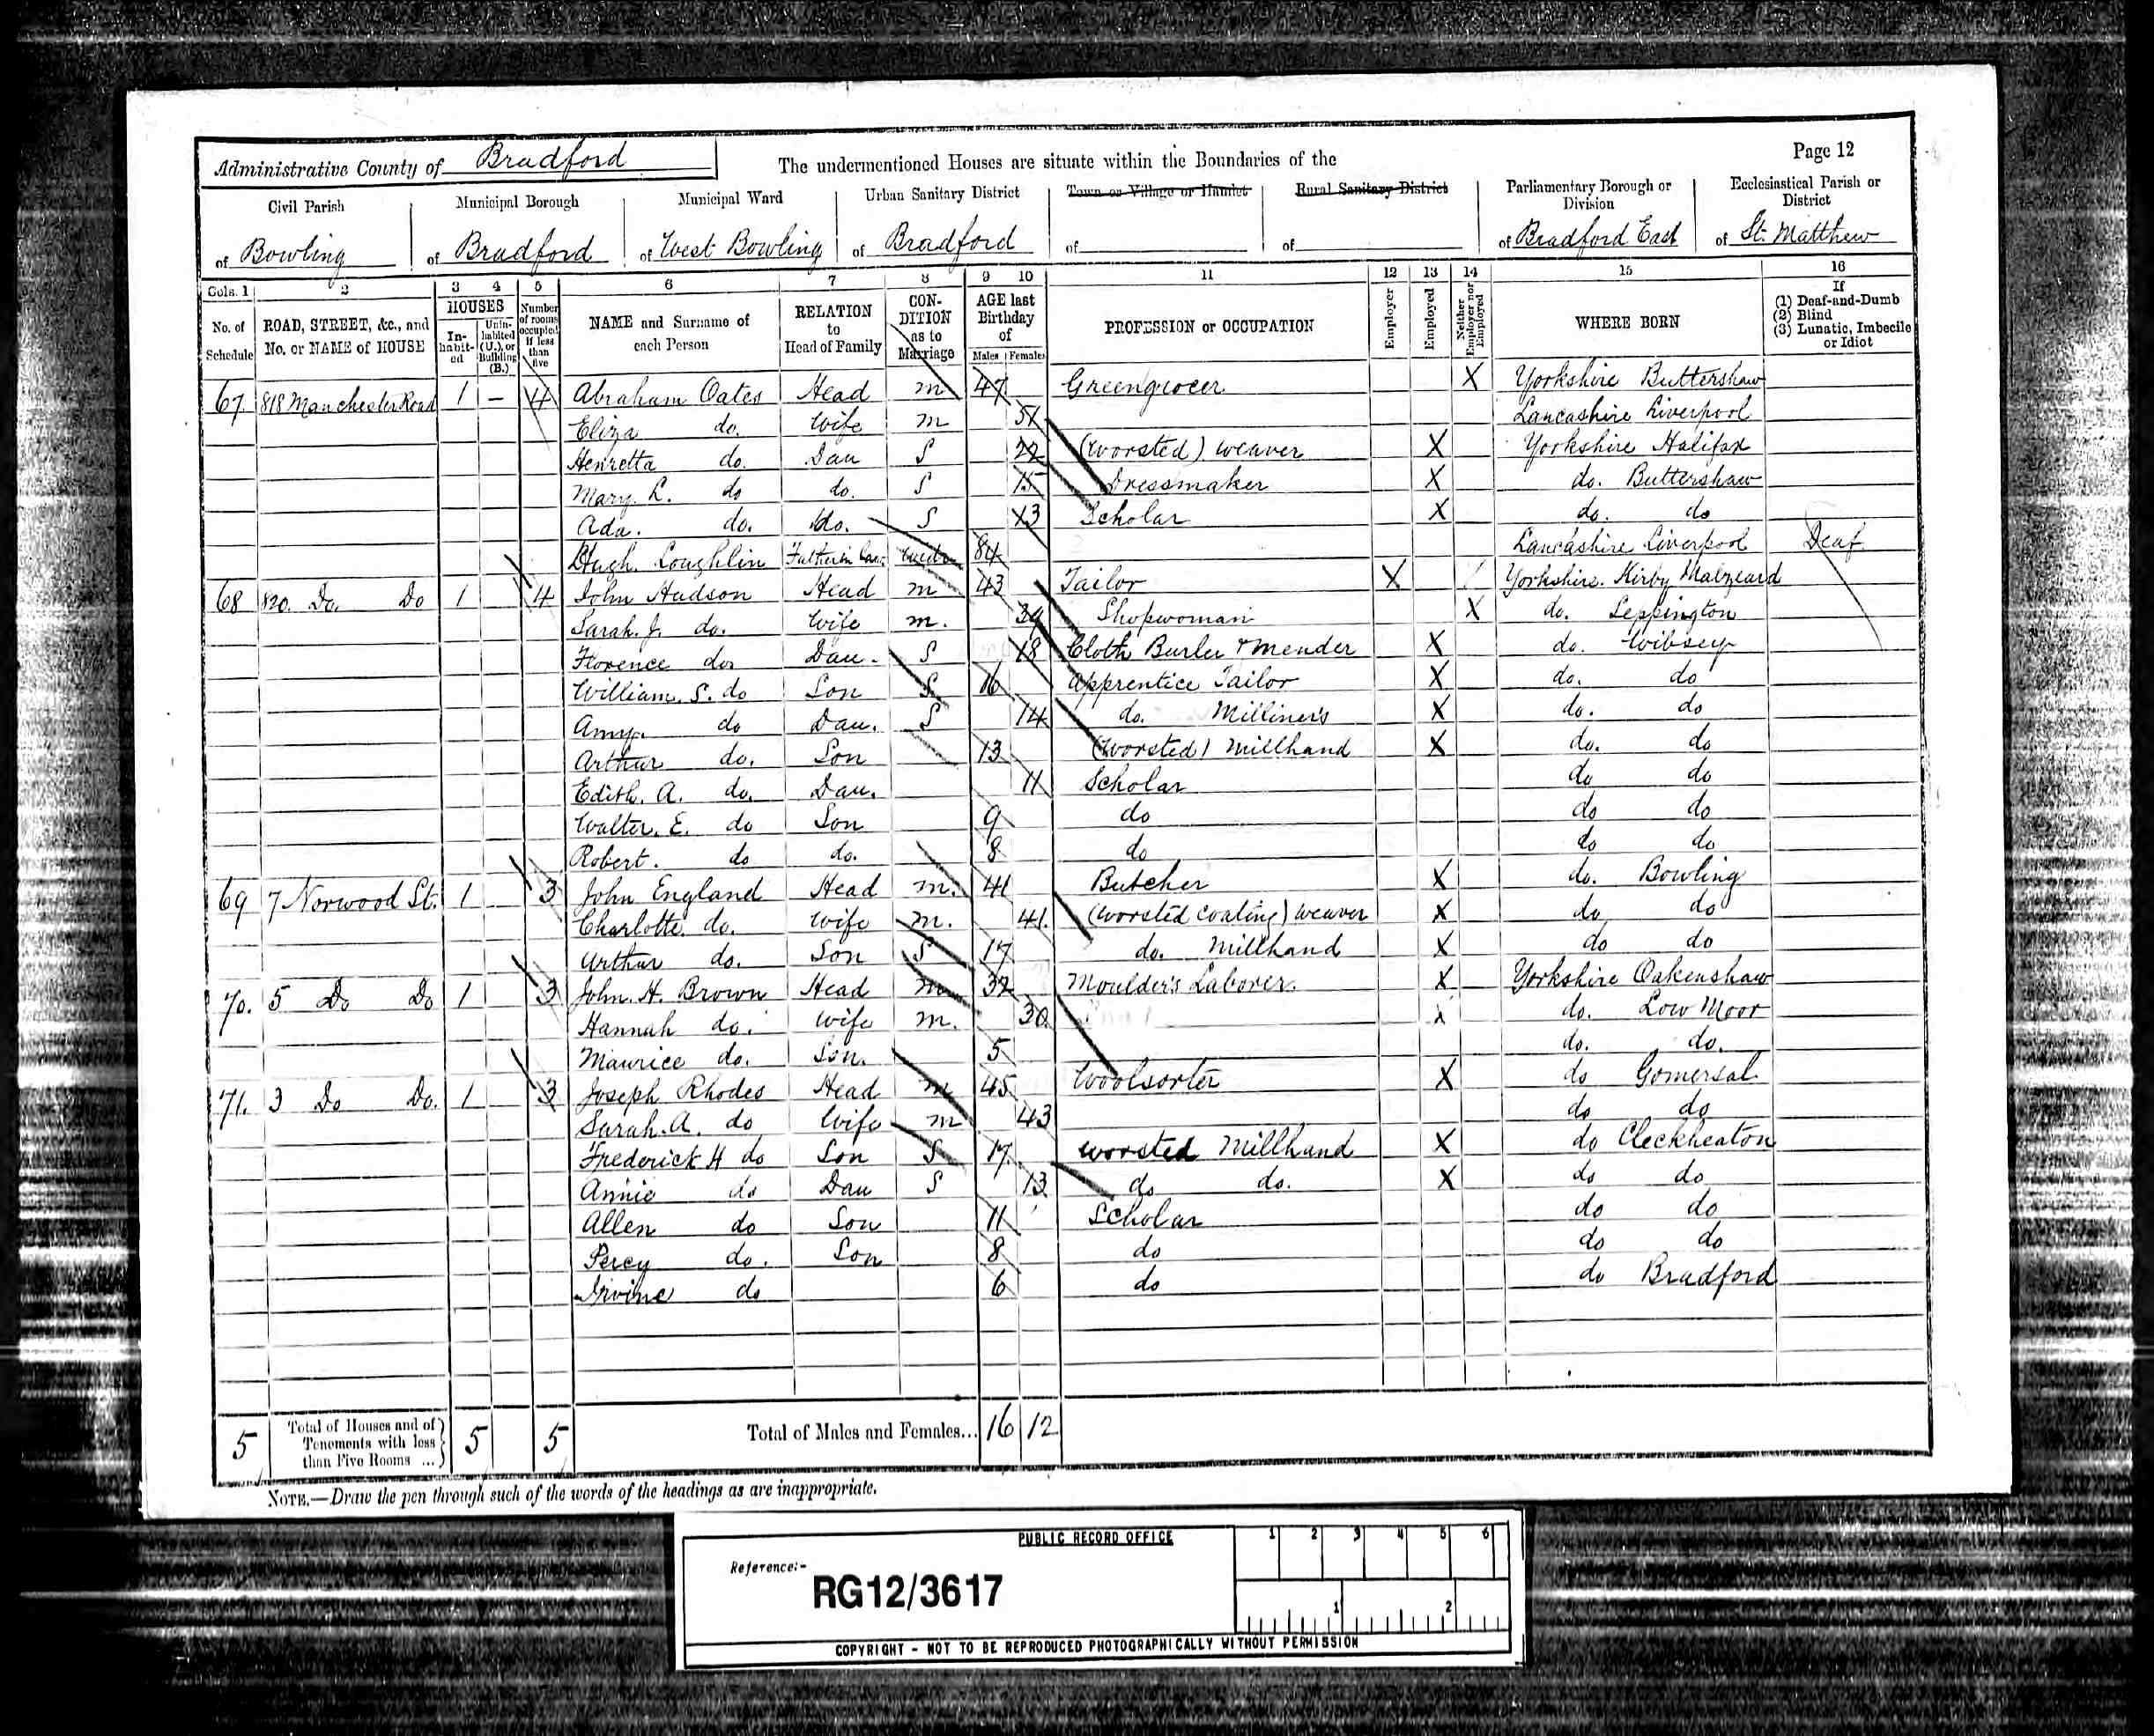 Page 12
Administrative County of Bradford The undermentioned Houses are situate within the Boundaries of the
Civil Parish Municipal Borough Municipal Ward Urban Sanitary District Town or Village or Hamlet Rural Sanitary District Parliamentary Borough or Division Ecclesiastical Parish or District
of Bowling of Bradford of West Bowling of Bradford of of of Bradford East of St. Matthew
Cols. 1 2 3 4 5 6 7 8 9 10 11 12 13 14 15 16
No. of Schedule ROAD, STREET, &c., and No. or NAME of HOUSE HOUSES Inhabited Uninhabited (U.), or Building (B.) Number of rooms occupied if less than five NAME and Surname of each Person RELATION to Head of Family CONDITION as to Marriage AGE last Birthday of Males Females PROFESSION or OCCUPATION Employer Employed Neither Employer nor Employed WHERE BORN If (1) Deaf-and-Dumb (2) Blind (3) Lunatic, Imbecile or Idiot
67. 818 Manchester Road 1 – 4 Abraham Oates Head m 47 Greengrocer X Yorkshire Buttershaw
Eliza do. Wife m 51 Lancashire Liverpool
Henretta do. Dau S 22 (Worsted) Weaver X Yorkshire Halifax
Mary. L. do do. S 15 Dressmaker X do. Buttershaw
Ada. do. do. S 13 Scholar X do. do
Hugh. Loughlin Father in Law Widr 84 Lancashire Liverpool Deaf
68 820. Do. Do 1 4 John Hudson Head m 43 Tailor X Yorkshire. Kirby Malzeard
Sarah. J. do. Wife m. Shopwoman X do. Leppington
Florence do. Dau. S 18 Cloth Burler & Mender X do. Wibsey
William. S. do Son S 16 Apprentice Tailor X do. do
Amy. do Dau. S 14 do. Milliner's X do. do
Arthur do. Son 13 (Worsted) Millhand X do. do
Edith. A. do. Dau. 11 Scholar do do
Walter. E. do Son 9 do do do
Robert. do do. 8 do do do
69 7 Norwood St. 1 3 John England Head m. 41 Butcher X do. Bowling
Charlotte. do. Wife m. 41. (Worsted Coating) Weaver X do do
Arthur do. Son S 17 do. Millhand X do do
70. 5 Do Do 1 3 John. H. Brown Head m 32 Moulder's Laborer. X Yorkshire Oakenshaw
Hannah do. Wife m. 30 x do. Low Moor
Maurice do. Son. 5 do. do.
71. 3 Do Do. 1 3 Joseph Rhodes Head m 45 Woolsorter X do Gomersal
Sarah. A. do Wife m 43 do do
Frederick H do Son S 17 Worsted Millhand X do Cleckheaton
Annie do Dau S 13 do do. X do do
Allen do Son 11 Scholar do do
Percy do. Son 8 do do do
Irvine do 6 do do Bradford
5 Total of Houses and of Tenements with less than Five Rooms ... 5 5 Total of Males and Females... 16 12
NOTE.—Draw the pen through such of the words of the headings as are inappropriate.
PUBLIC RECORD OFFICE
1 2 3 4 5 6
Reference:-
RG12/3617
1 2
COPYRIGHT - NOT TO BE REPRODUCED PHOTOGRAPHICALLY WITHOUT PERMISSION